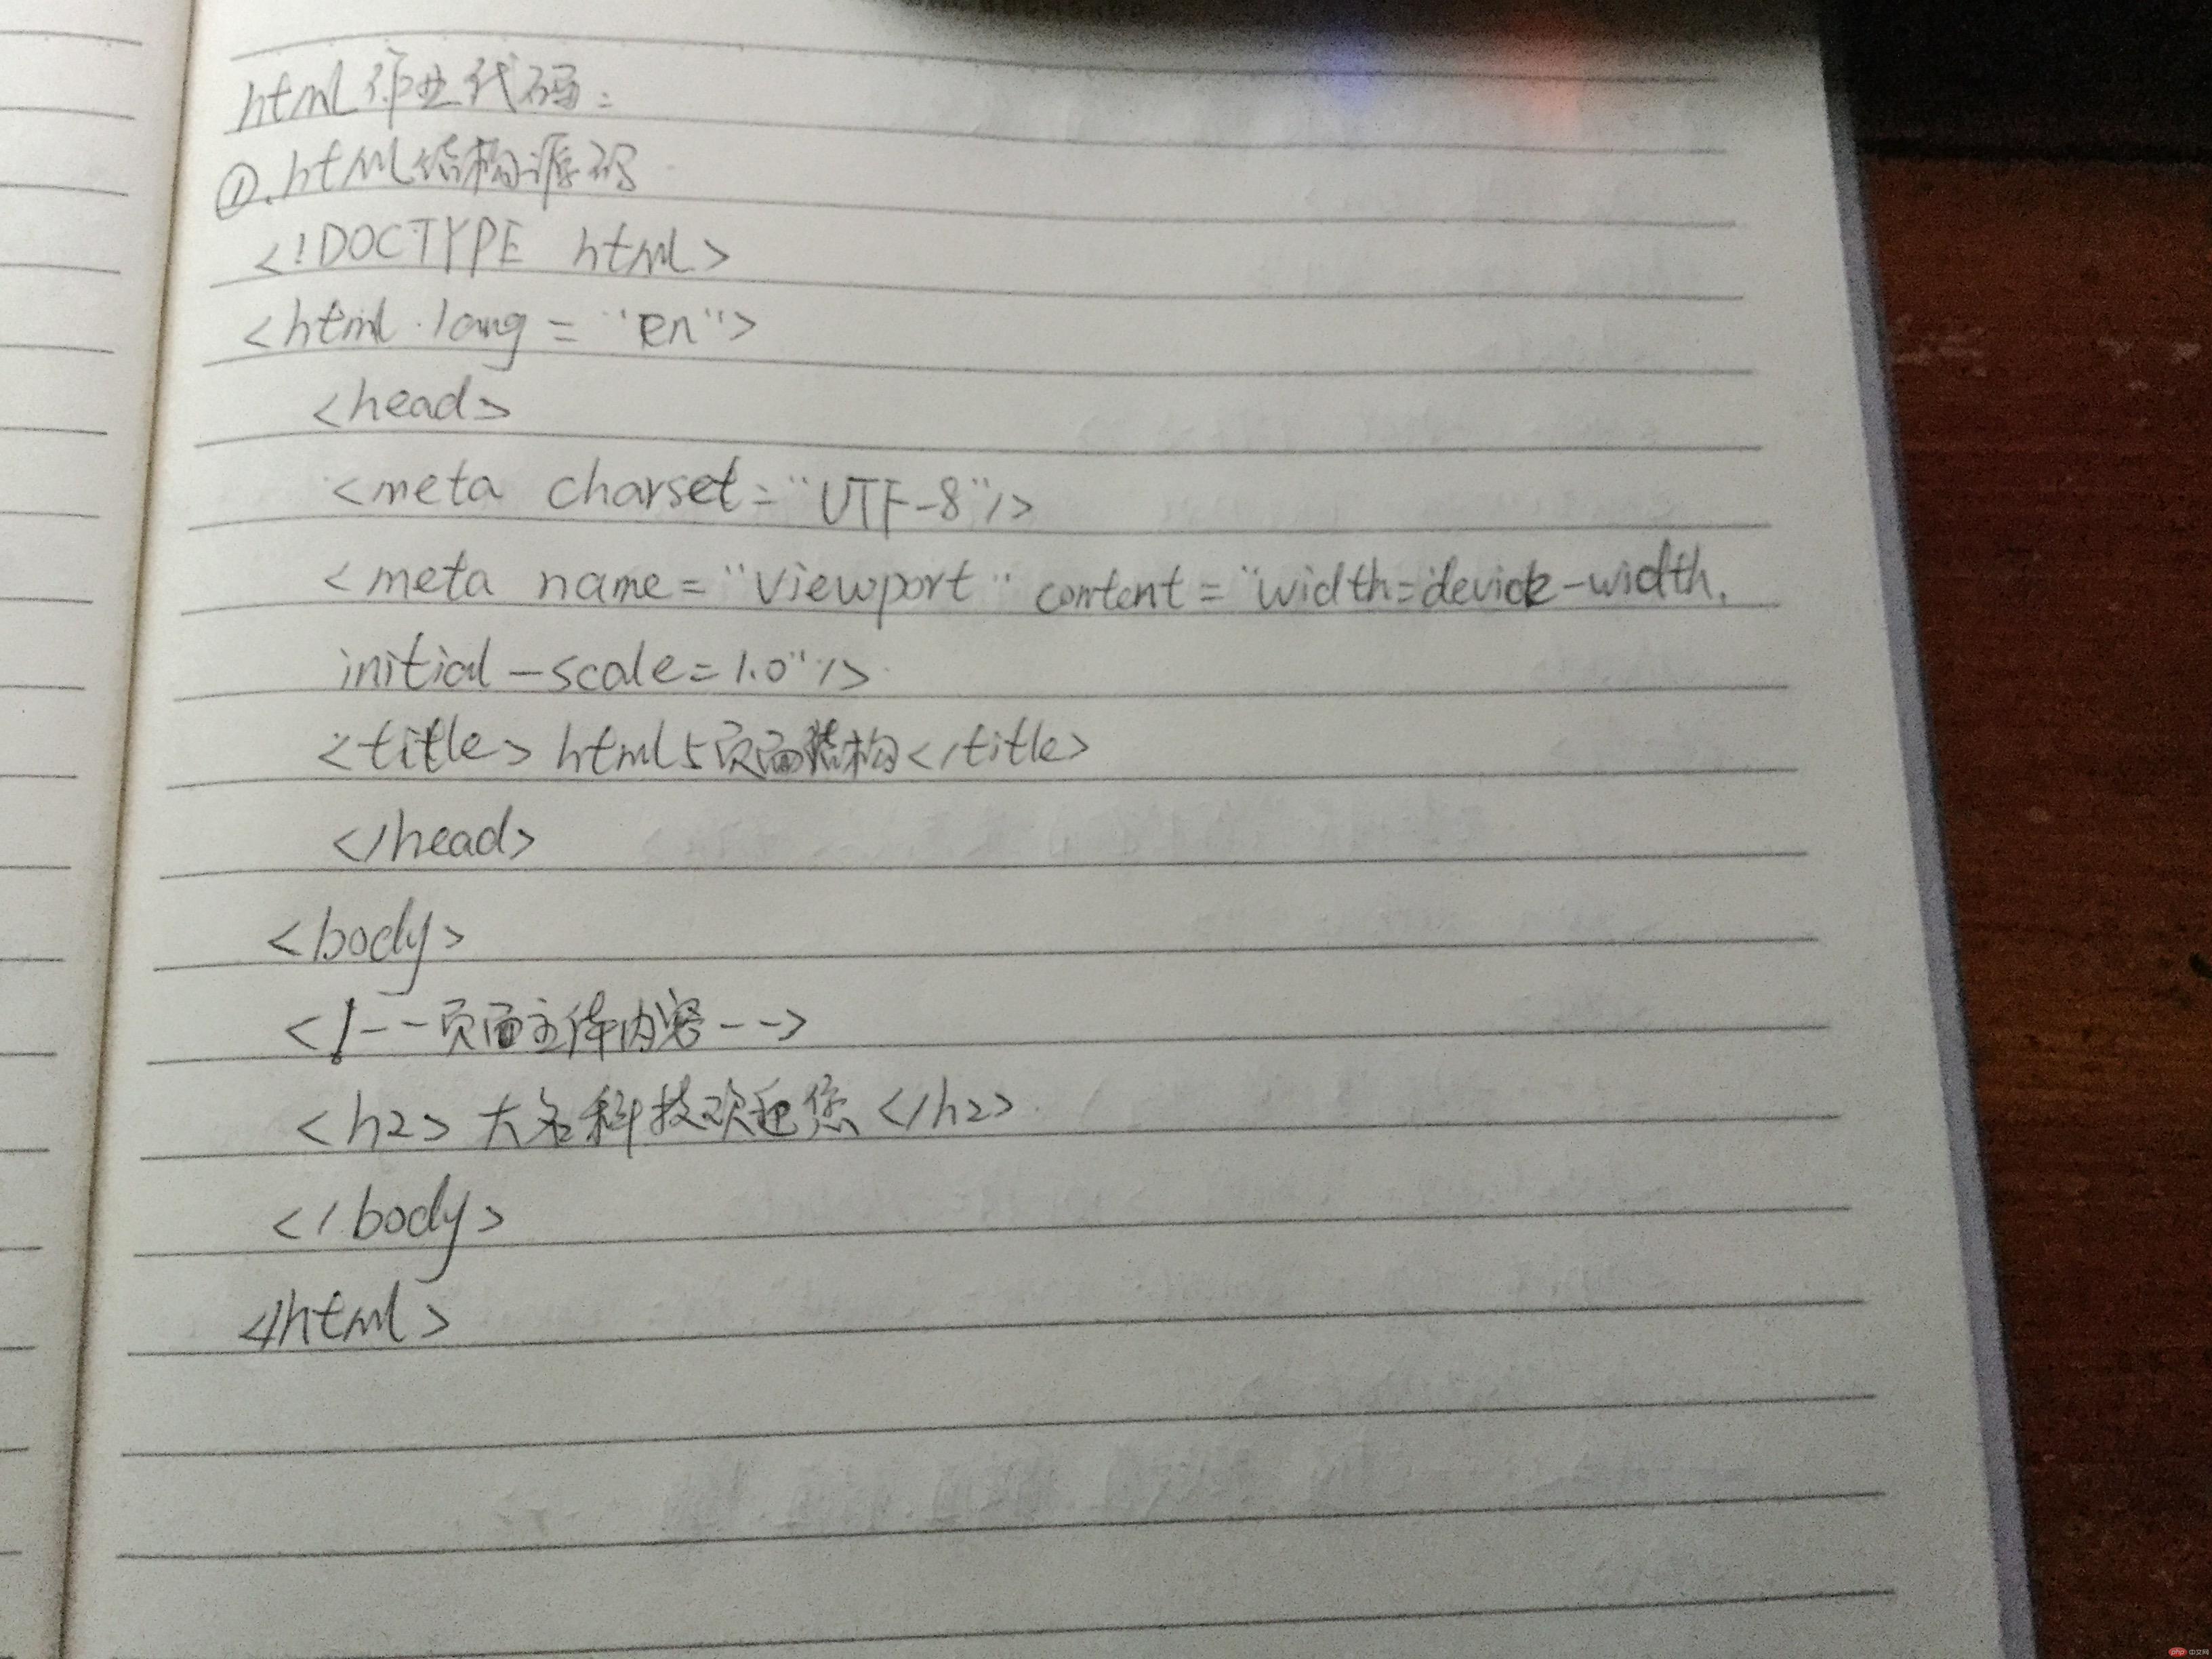 html作业代码:
①.html结构源码
<!DOCTYPE html>
<html lang="en">
<head>
<meta charset="UTF-8"/>
<meta name="viewport" content="width=device-width,
initial-scale=1.0"/>
<title>html5页面结构</title>
</head>
<body>
<!--页面主体内容-->
<h2>大名科技欢迎您</h2>
</body>
</html>
php 中文网